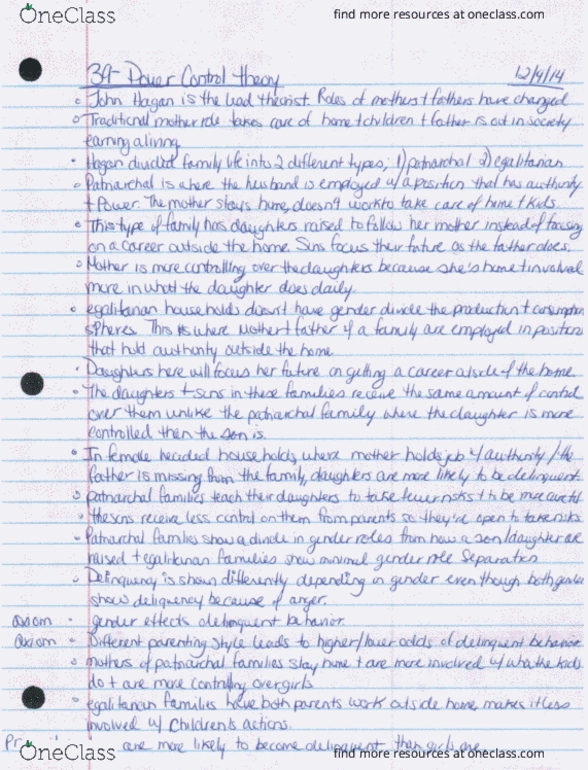 OneClass
find more resources at oneclass.com
39- Power Control theory 12/9/14
John Hagan is the lead theorist. Roles of mothers + fathers have changed
Traditional mother role takes care of home + children + father is out in society
earning a living.
Hagan divided family life into 2 different types; 1) patriarchal 2) egalitarian
Patriarchal is where the husband is employed w/ a position that has authority
+ Power. The mother stays home, doesn't work to take care of home + kids.
This type of family has daughters raised to follow her mother instead of focusing
on a career outside the home. Sons focus their future as the father does.
Mother is more controlling over the daughters because she's home + involved
more in what the daughter does daily.
egalitarian households doesn't have gender divide the production + consumption
spheres. This is where Mother + father of a family are employed in positions
that hold authority outside the home
Daughters here will focus her future on getting a career outside of the home
The daughters + sons in these families receive the same amount of control
over them unlike the patriarchal family where the daughter is more
controlled then the son is.
In female headed households, where mother holds job w/ authority / the
father is missing from the family, daughters are more likely to be delinquent
patriarchal families teach their daughters to take fewer risks + to be more careful
the sons receive less control on them from parents so they're open to take risks
Patriarchal families show a divide in gender roles from how a son/daughter are
raised + egalitarian families show minimal gender role separation
Delinquency is shown differently depending on gender even though both genders
show deliquency because of anger.
axiom gender effects delinquent behavior.
axiom Different parenting style leads to higher/lower odds of delinquent behavior
mothers of patriarchal families stay home + are more involved w/ what the kids
do + are more controlling over girls
egalitarian families have both parents work outside home makes it less
involved w/ Children's actions.
are more likely to become delinquent than girls are
OneClass
find more resources at oneclass.com